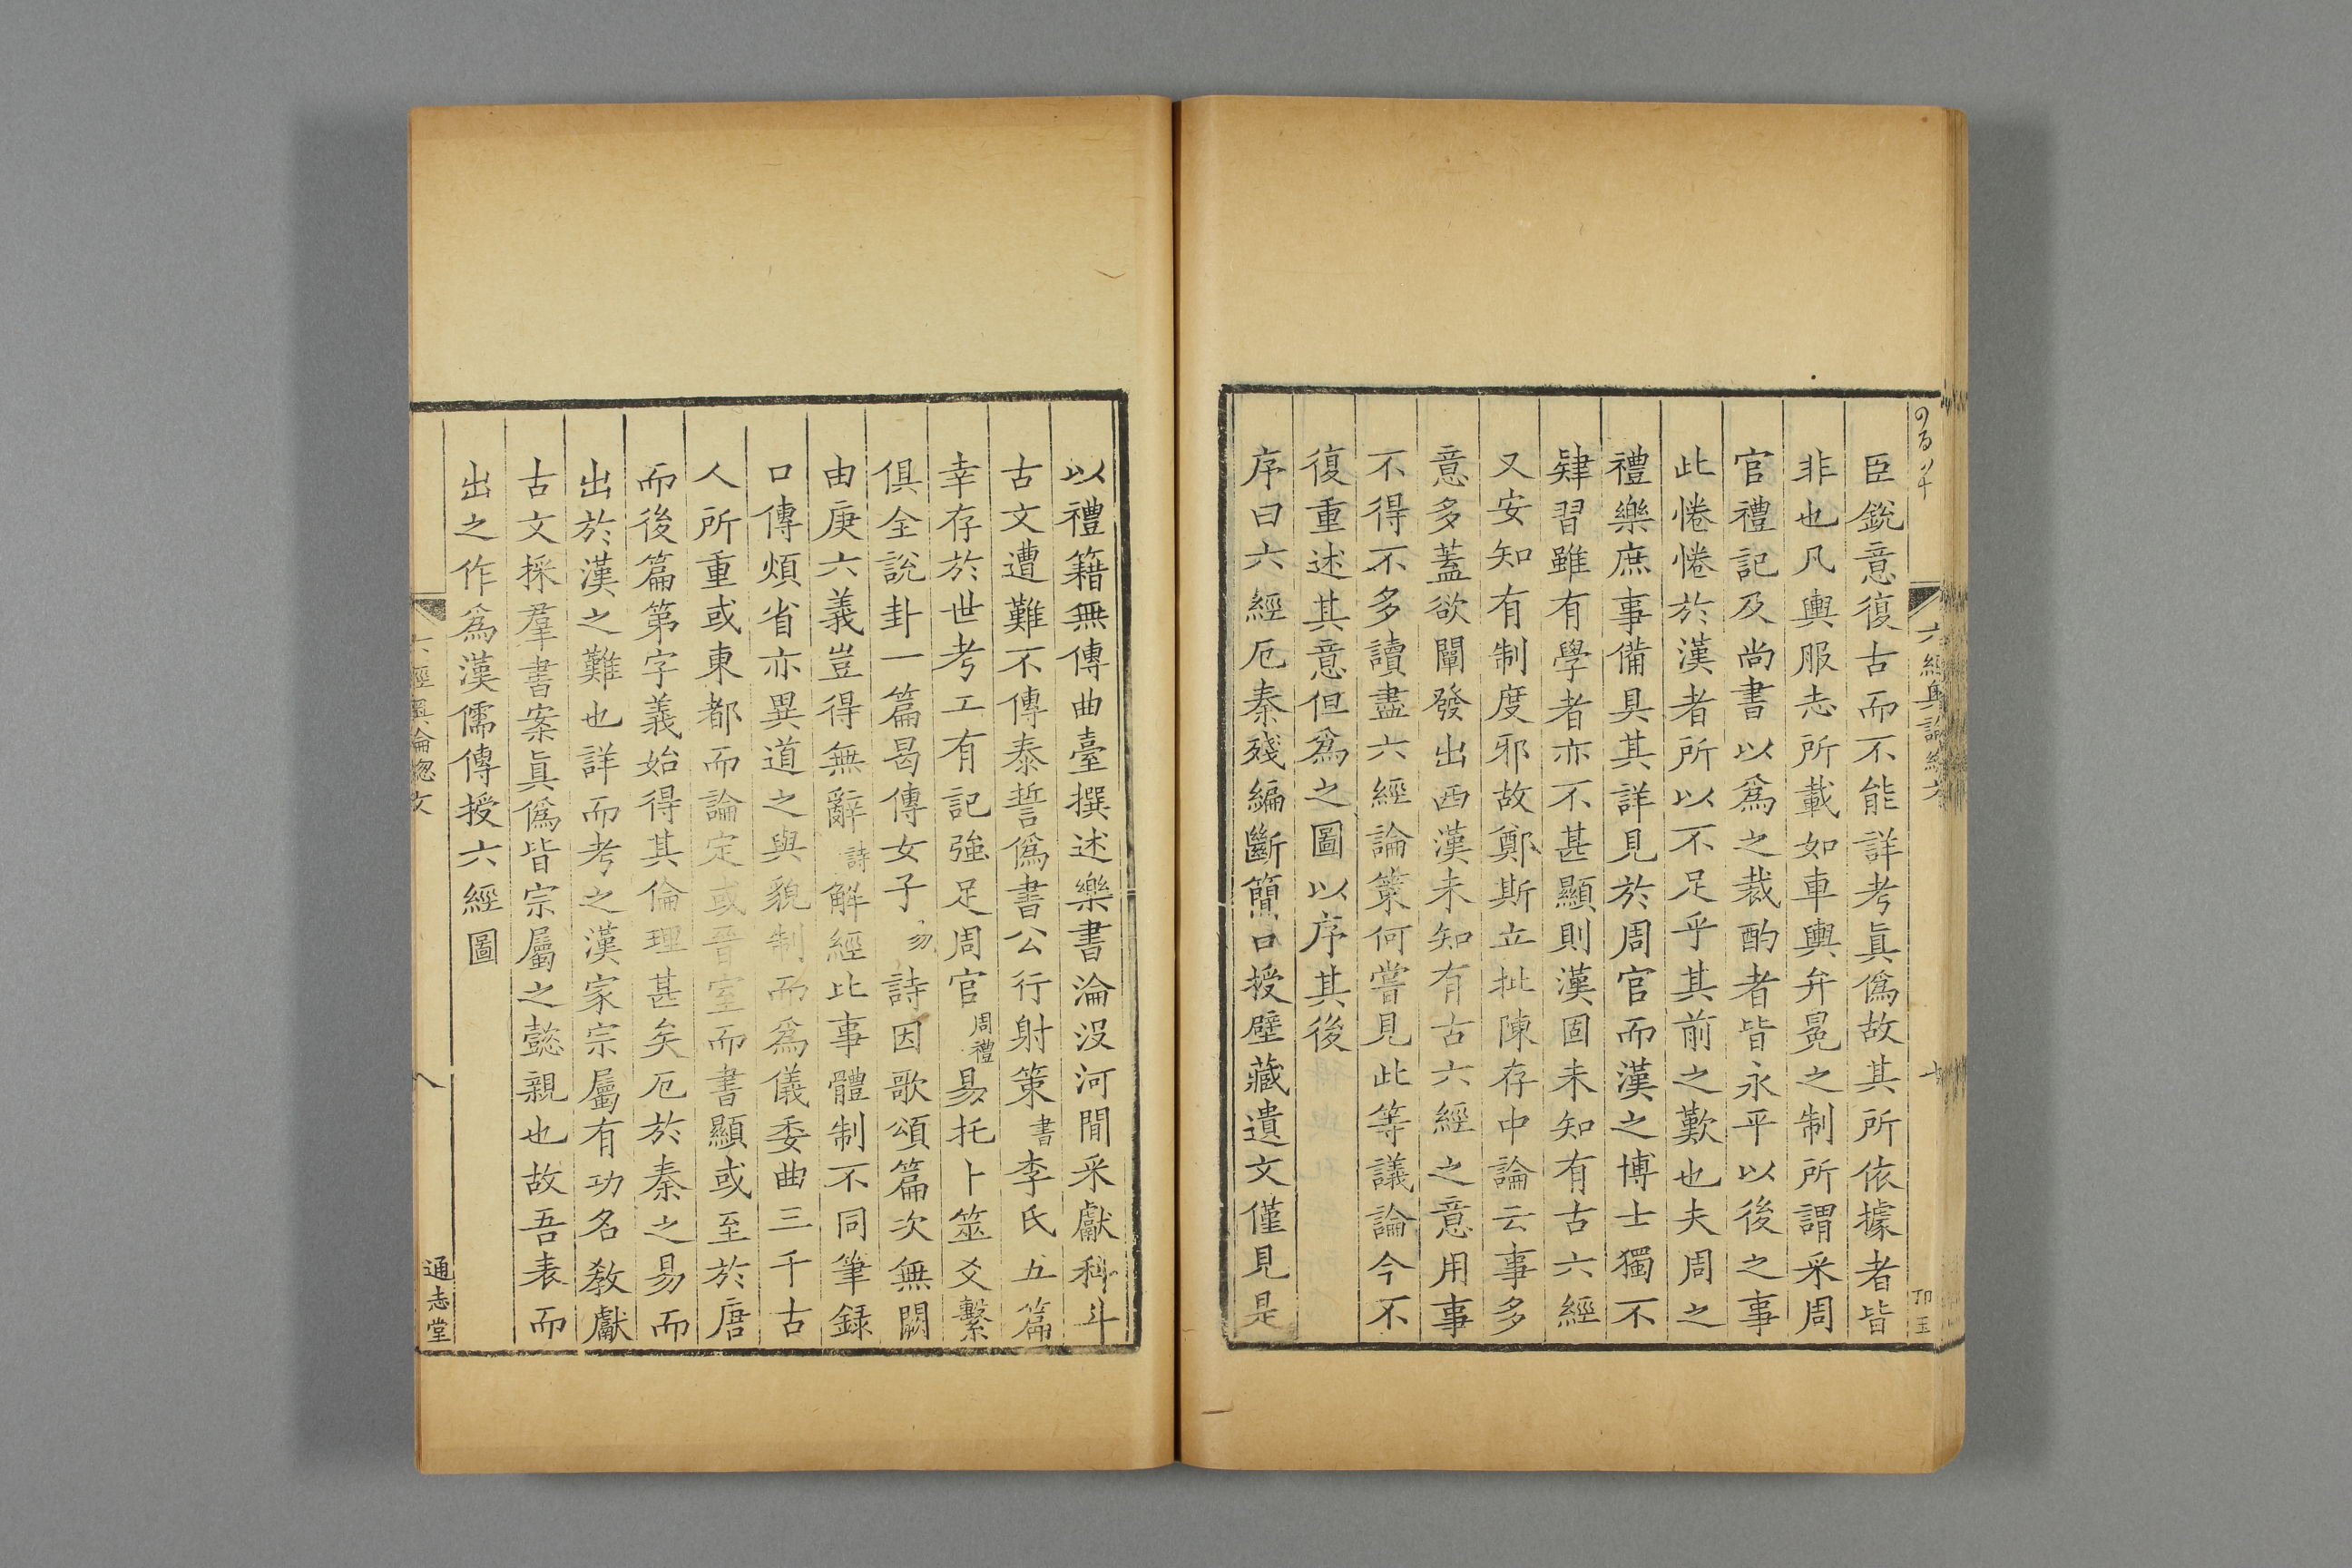 臣銳意復古而不能詳考眞僞故其所依據者皆
非也凡輿服志所載如車輿弁冕之制所謂采周
官禮記及尚書以爲之裁酌者皆永平以後之事
此惓惓於漢者所以不足乎其前之歎也夫周之
禮樂庶事備具其詳見於周官而漢之博士獨不
肄習雖有學者亦不甚顯則漢固未知有古六經
又安知有制度邪故鄭斯立批陳存中論云事多
意多蓋欲闡發出西漢未知有古六經之意用事
不得不多讀盡六經論策何嘗見此等議論今不
復重述其意但爲之圖以序其後
序曰六經厄秦殘編斷簡口授壁藏遺文僅見是
以禮籍無傳曲臺撰述樂書淪没河間采獻科斗
古文遭難不傳泰誓僞書公行射策書李氏五篇
幸存於世考工有記強足周官周禮易托卜筮爻繫
俱全說卦一篇曷傳女子易詩因歌頌篇次無闕
由庚六義豈得無辭詩解經比事體制不同筆録
口傳煩省亦異道之與貌制而爲儀委曲三千古
人所重或東都而論定或晉室而書顯或至於唐
而後篇第字義始得其倫理甚矣厄於秦之易而
出於漢之難也詳而考之漢家宗屬有功名教獻
古文採羣書案眞僞皆宗屬之懿親也故吾表而
出之作爲漢儒傳授六經圖
六經奧論總文
八
通志堂